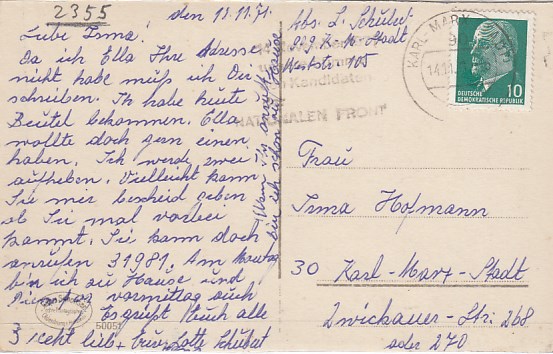 2355
den 13.11.71.
Liebe Irma!
Da ich Ella Ihre Adresse
nicht habe muß ich Dir
schreiben. Ich habe heute
Beutel bekommen. Ella
wollte doch gern einen
haben. Ich werde zwei
aufheben. Vielleicht kann
Sie mir Bescheid geben
ob Sie mal vorbei
kommt. Sie kann doch
anrufen 31981. Am Montag
bin ich zu Hause und
vormittag auch
Es grüßt Euch alle
recht lieb Lotte Schubert
ich schon zu Hause
50051
Abs. L. Schubert
K-M-Stadt
105
Kandidaten
NATIONALEN FRONT
KARL-MARX-STADT
14.11.
DEUTSCHE
DEMOKRATISCHE REPUBLIK
10
Frau
Irma Hofmann
30 Karl-Marx-Stadt
Zwickauer-Str. 268
oder 270